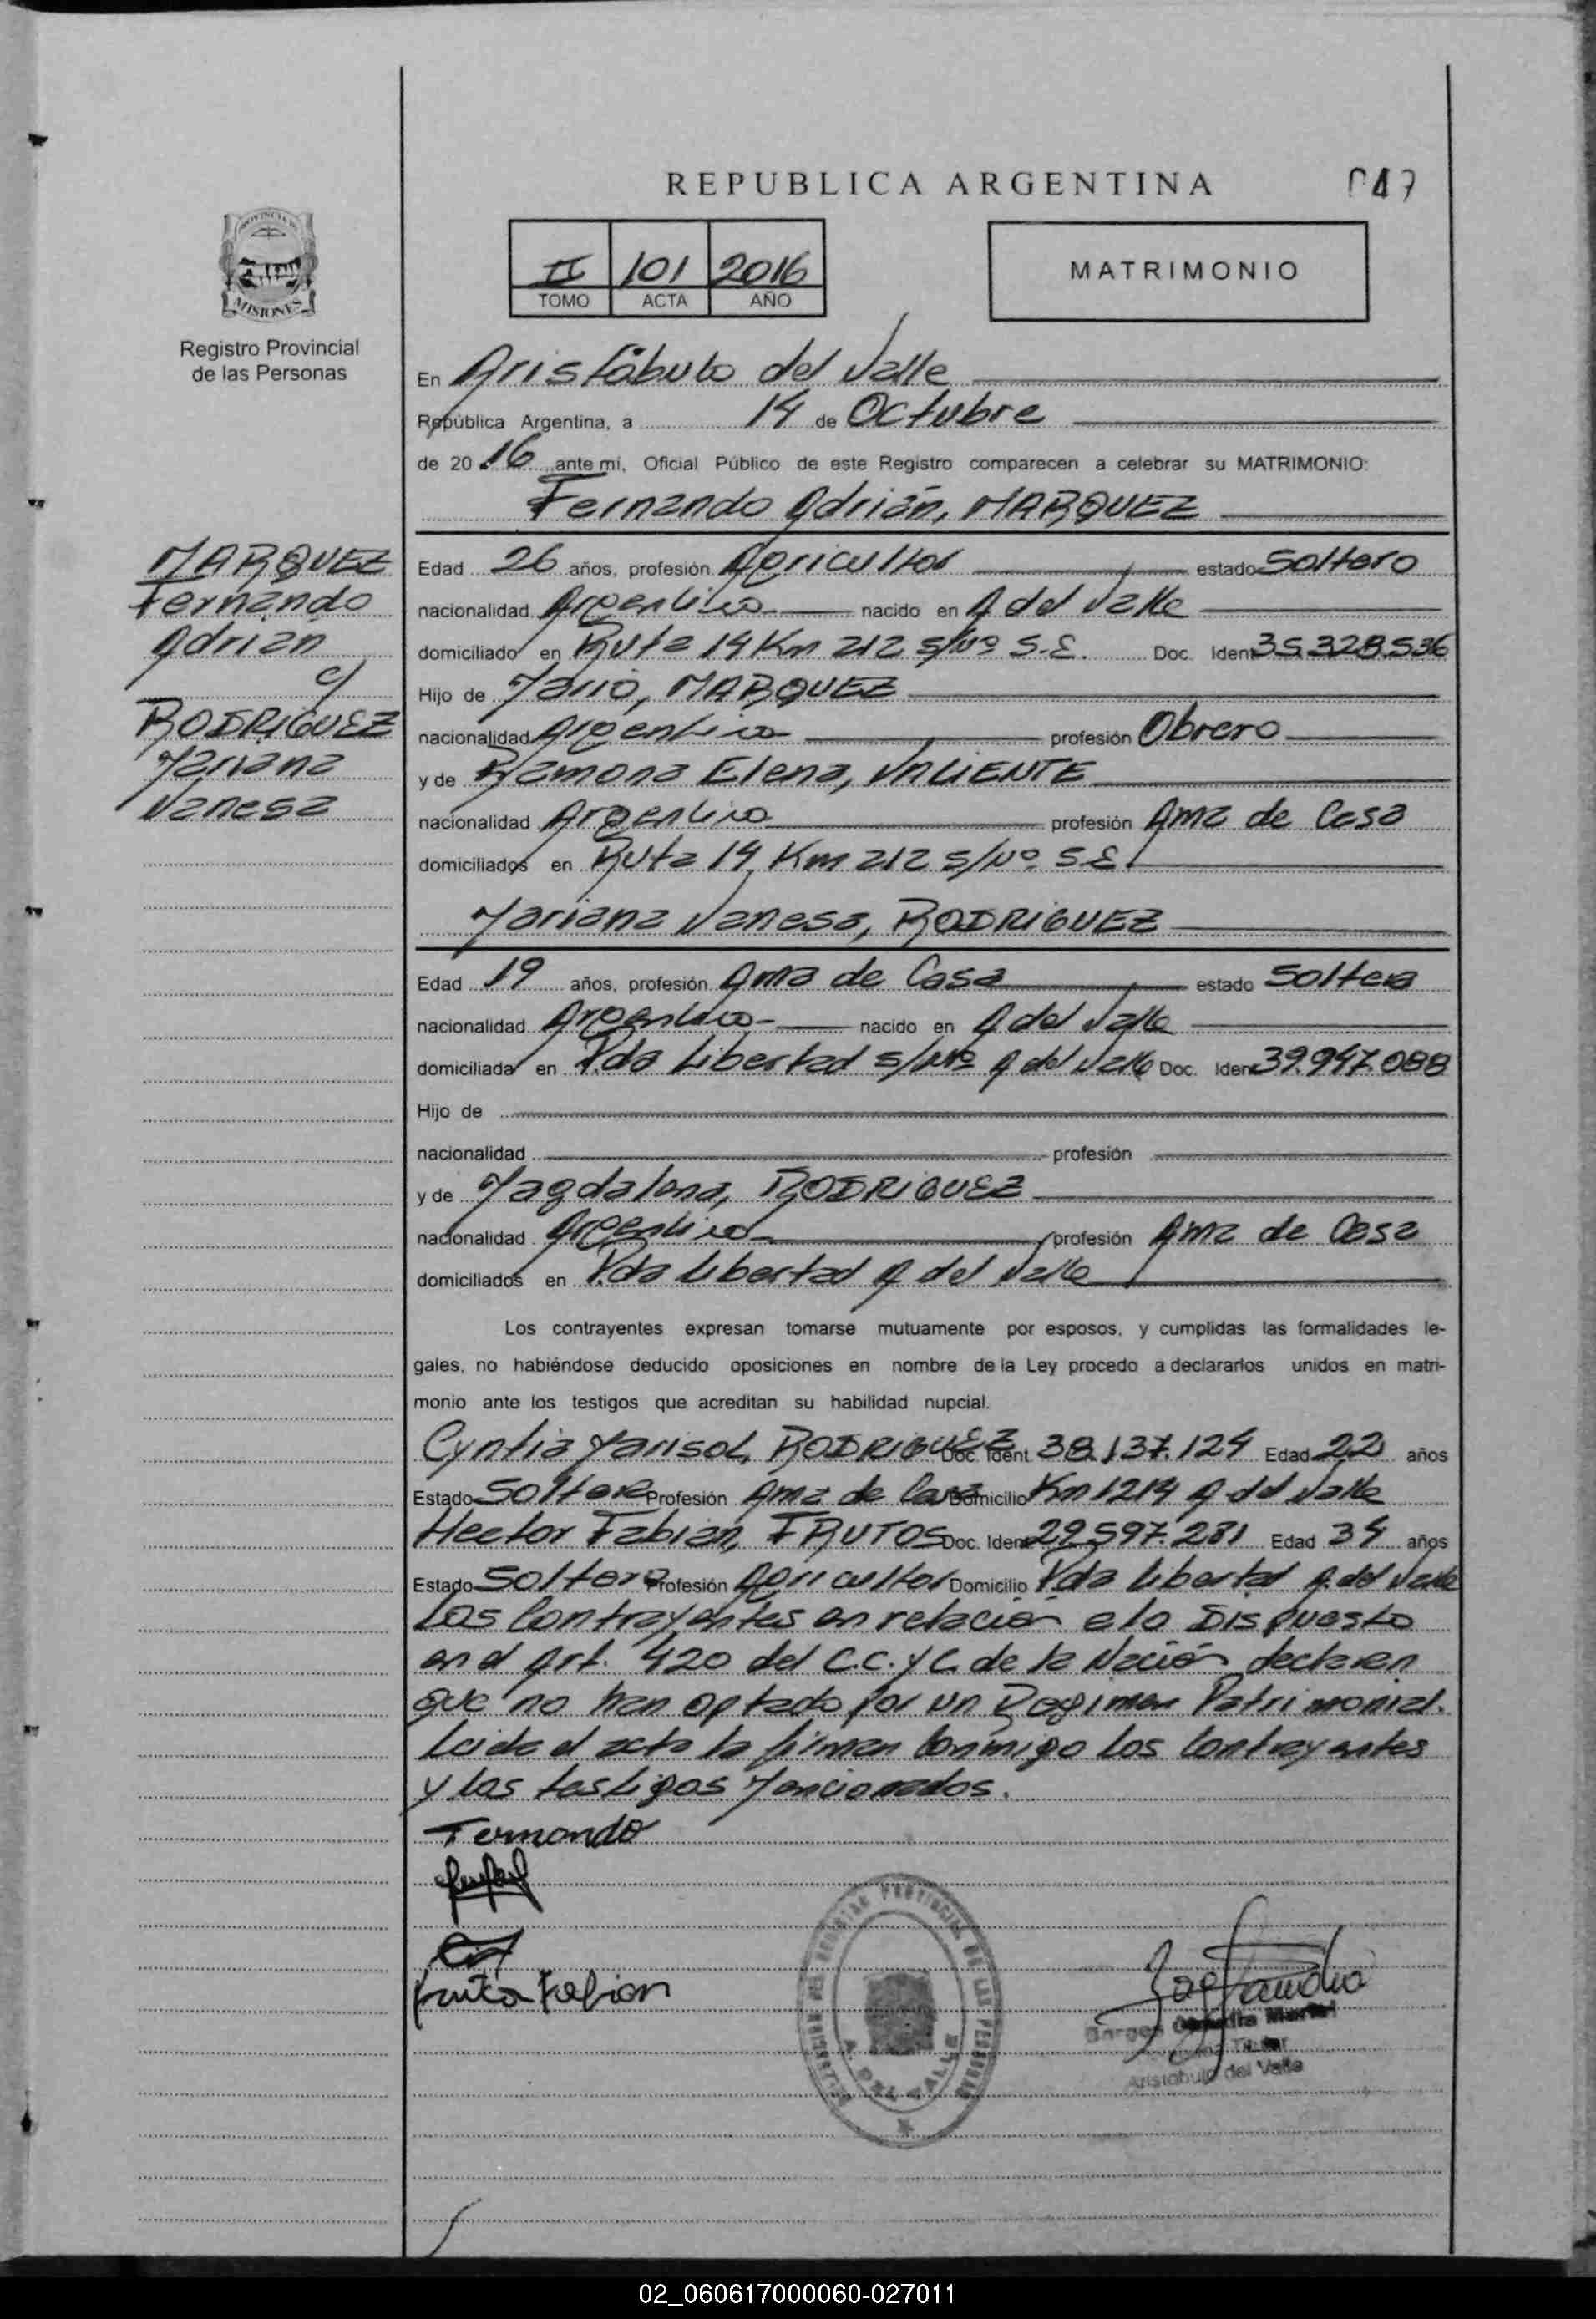 REPUBLICA ARGENTINA
047
PROVINCIA DE
MISIONES
Registro Provincial
de las Personas
II 101 2016
TOMO ACTA AÑO
MATRIMONIO
En Aristóbulo del Valle
República Argentina, a 14 de Octubre
de 20 16 ante mí, Oficial Público de este Registro comparecen a celebrar su MATRIMONIO:
Fernando Adrián, MARQUEZ
MARQUEZ
Fernando
Adrián
c/
RODRIGUEZ
Mariana
Vanesa
Edad 26 años, profesión Agricultor estado Soltero
nacionalidad Argentina nacido en A del Valle
domiciliado en Ruta 14 Km 212 s/Nº S.E. Doc. Ident 35.328.536
Hijo de Mario, MARQUEZ
nacionalidad Argentina profesión Obrero
y de Ramona Elena, VALIENTE
nacionalidad Argentina profesión Ama de Casa
domiciliados en Ruta 14 Km 212 s/Nº S.E.
Mariana Vanesa, RODRIGUEZ
Edad 19 años, profesión Ama de Casa estado Soltera
nacionalidad Argentina nacido en A del Valle
domiciliada en Pda Libertad s/Nº A del Valle Doc. Ident 39.947.088
Hijo de
nacionalidad profesión
y de Magdalena, RODRIGUEZ
nacionalidad Argentina profesión Ama de Casa
domiciliados en Pda Libertad A del Valle
Los contrayentes expresan tomarse mutuamente por esposos, y cumplidas las formalidades le-
gales, no habiéndose deducido oposiciones en nombre de la Ley procedo a declararlos unidos en matri-
monio ante los testigos que acreditan su habilidad nupcial.
Cyntia Marisol, RODRIGUEZ Doc. Ident 38.137.124 Edad 22 años
Estado Soltera Profesión Ama de Casa Domicilio Km 1214 A del Valle
Hector Fabian, FRUTOS Doc. Ident 29.597.281 Edad 34 años
Estado Soltero Profesión Agricultor Domicilio Pda Libertad A. del Valle
Los Contrayentes en relación a lo Dispuesto
en el Art. 420 del C.C. y C. de la Nación declaran
que no han optado por un Regimen Patrimonial.
Leida el acta la firman Conmigo los Contrayentes
y los testigos Mencionados.
Fernando
Fruto Fabian
PROVINCIAL DE LAS PERSONAS
A. DEL VALLE
Borges Claudia
Titular
Aristobulo del Valle
02_060617000060-027011